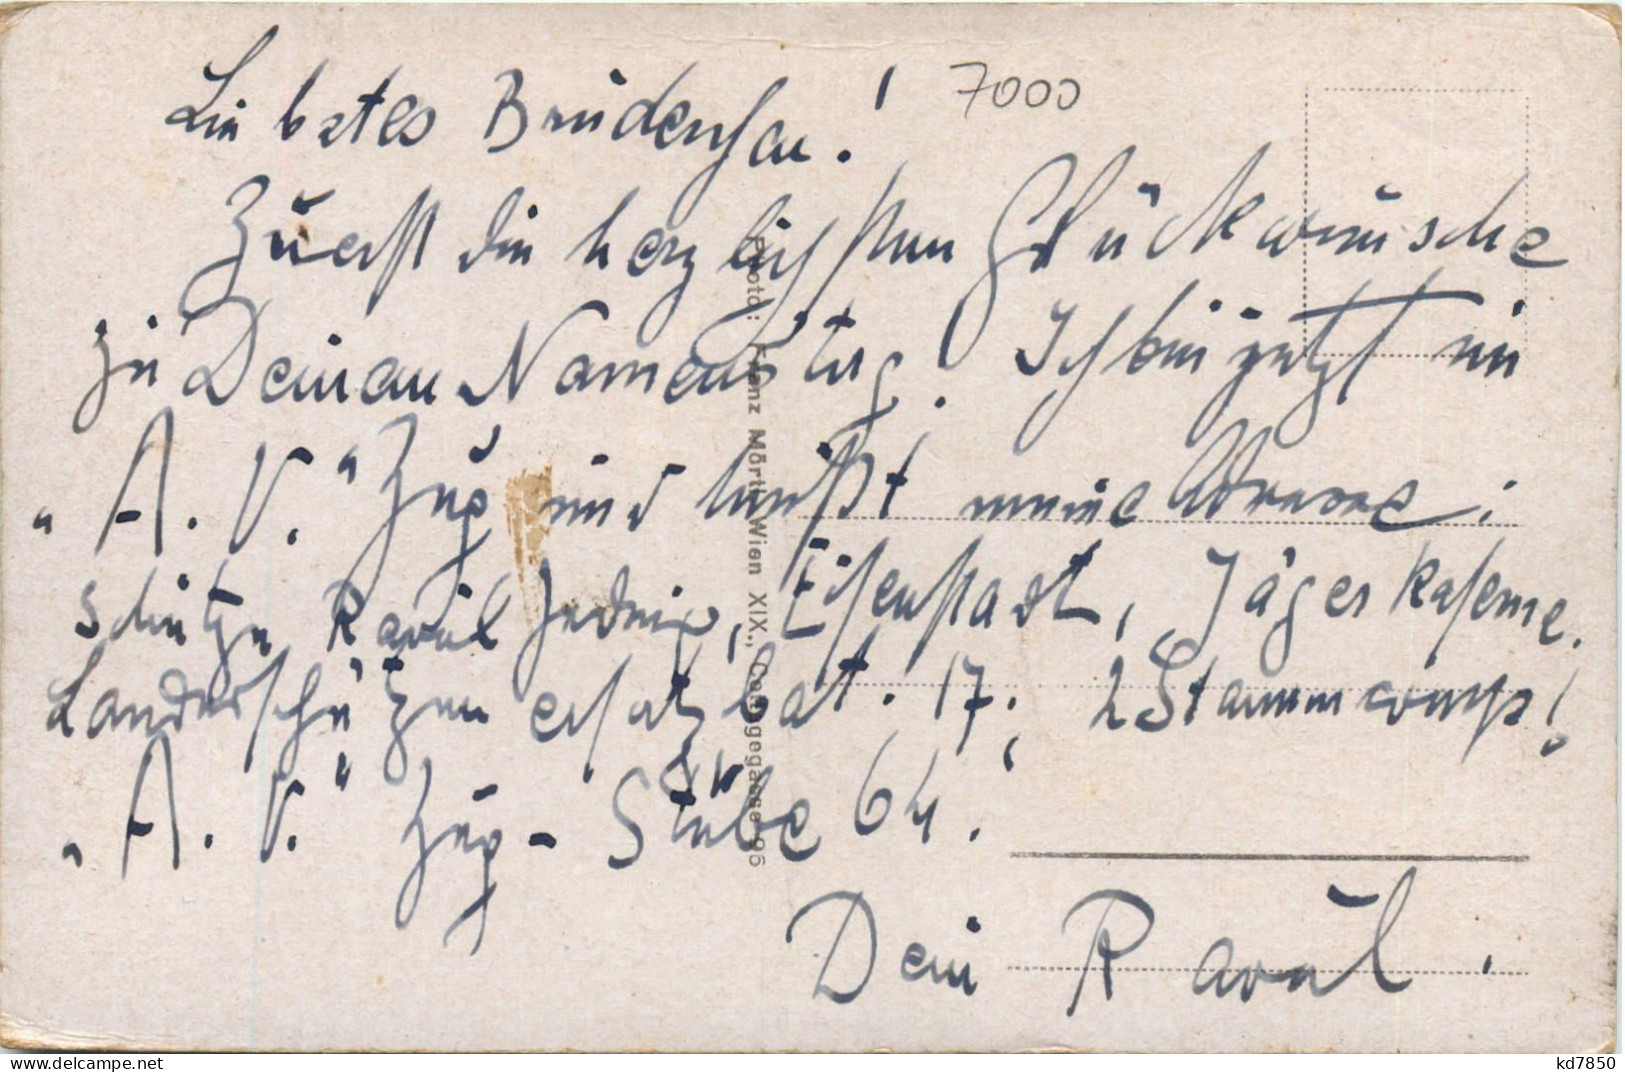 Liebstes Bruderherz!
7000
Zuerst die herzlichsten Glückwünsche
zu Deinem Namenstag! Ich bin jetzt im
"A. V." Zug und heißt meine Adresse:
Schütze Raoul Hedwig, Eisenstadt, Jägerkaserne.
Landesschützenersatzbat. 17; 2 Stammcomp!
"A. V." Zug - Stube 64.
Dein Raoul.
Photo: Franz Mörtl, Wien XIX., Cottagegasse 96
delcampe.net
kd7850